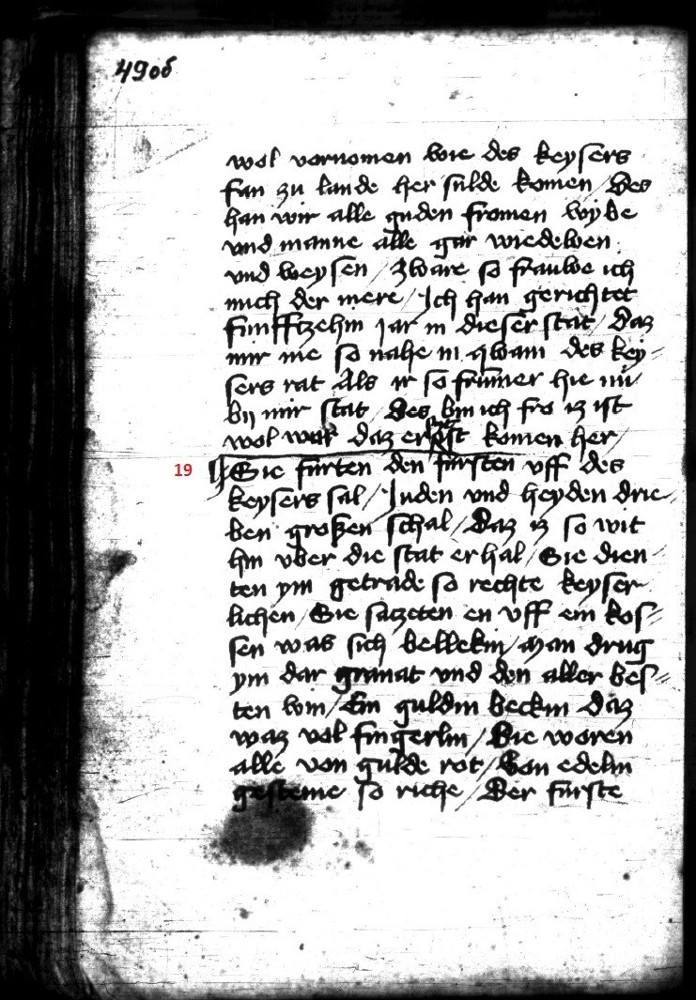 490b
wol vernomen wie des keysers
san zu lande her sulde komen / Des
han wir alle guden fromen wybe
vnd manne alle gar wiedewen
vnd weysen / Zware so frauwe ich
mich der mere / Ich han gerichtet
funfftzehin jar in dieser stat / Daz
mir nie so nahe in qwam des key=
sers rat Als ir so frumer hie nu
bij mir stat / Des bin ich fro iz ist
wol war daz er ist komen her /
19 Sie furten den fursten vff des
keysers sal / Juden vnd heyden drie
ben großen schal / Daz iz so wit
hin vber die stat erhal / Sie dien
ten ym getrade so rechte keyser
lichen / Sie satzeten en vff ein kos=
sen was sich bellekin / Man drug
ym dar granat vnd den aller bes=
ten win / Ein guldin beckin daz
waz vol fingerlin / Die woren
alle von gulde rot / Von edelin
gesteine so riche / Der furste